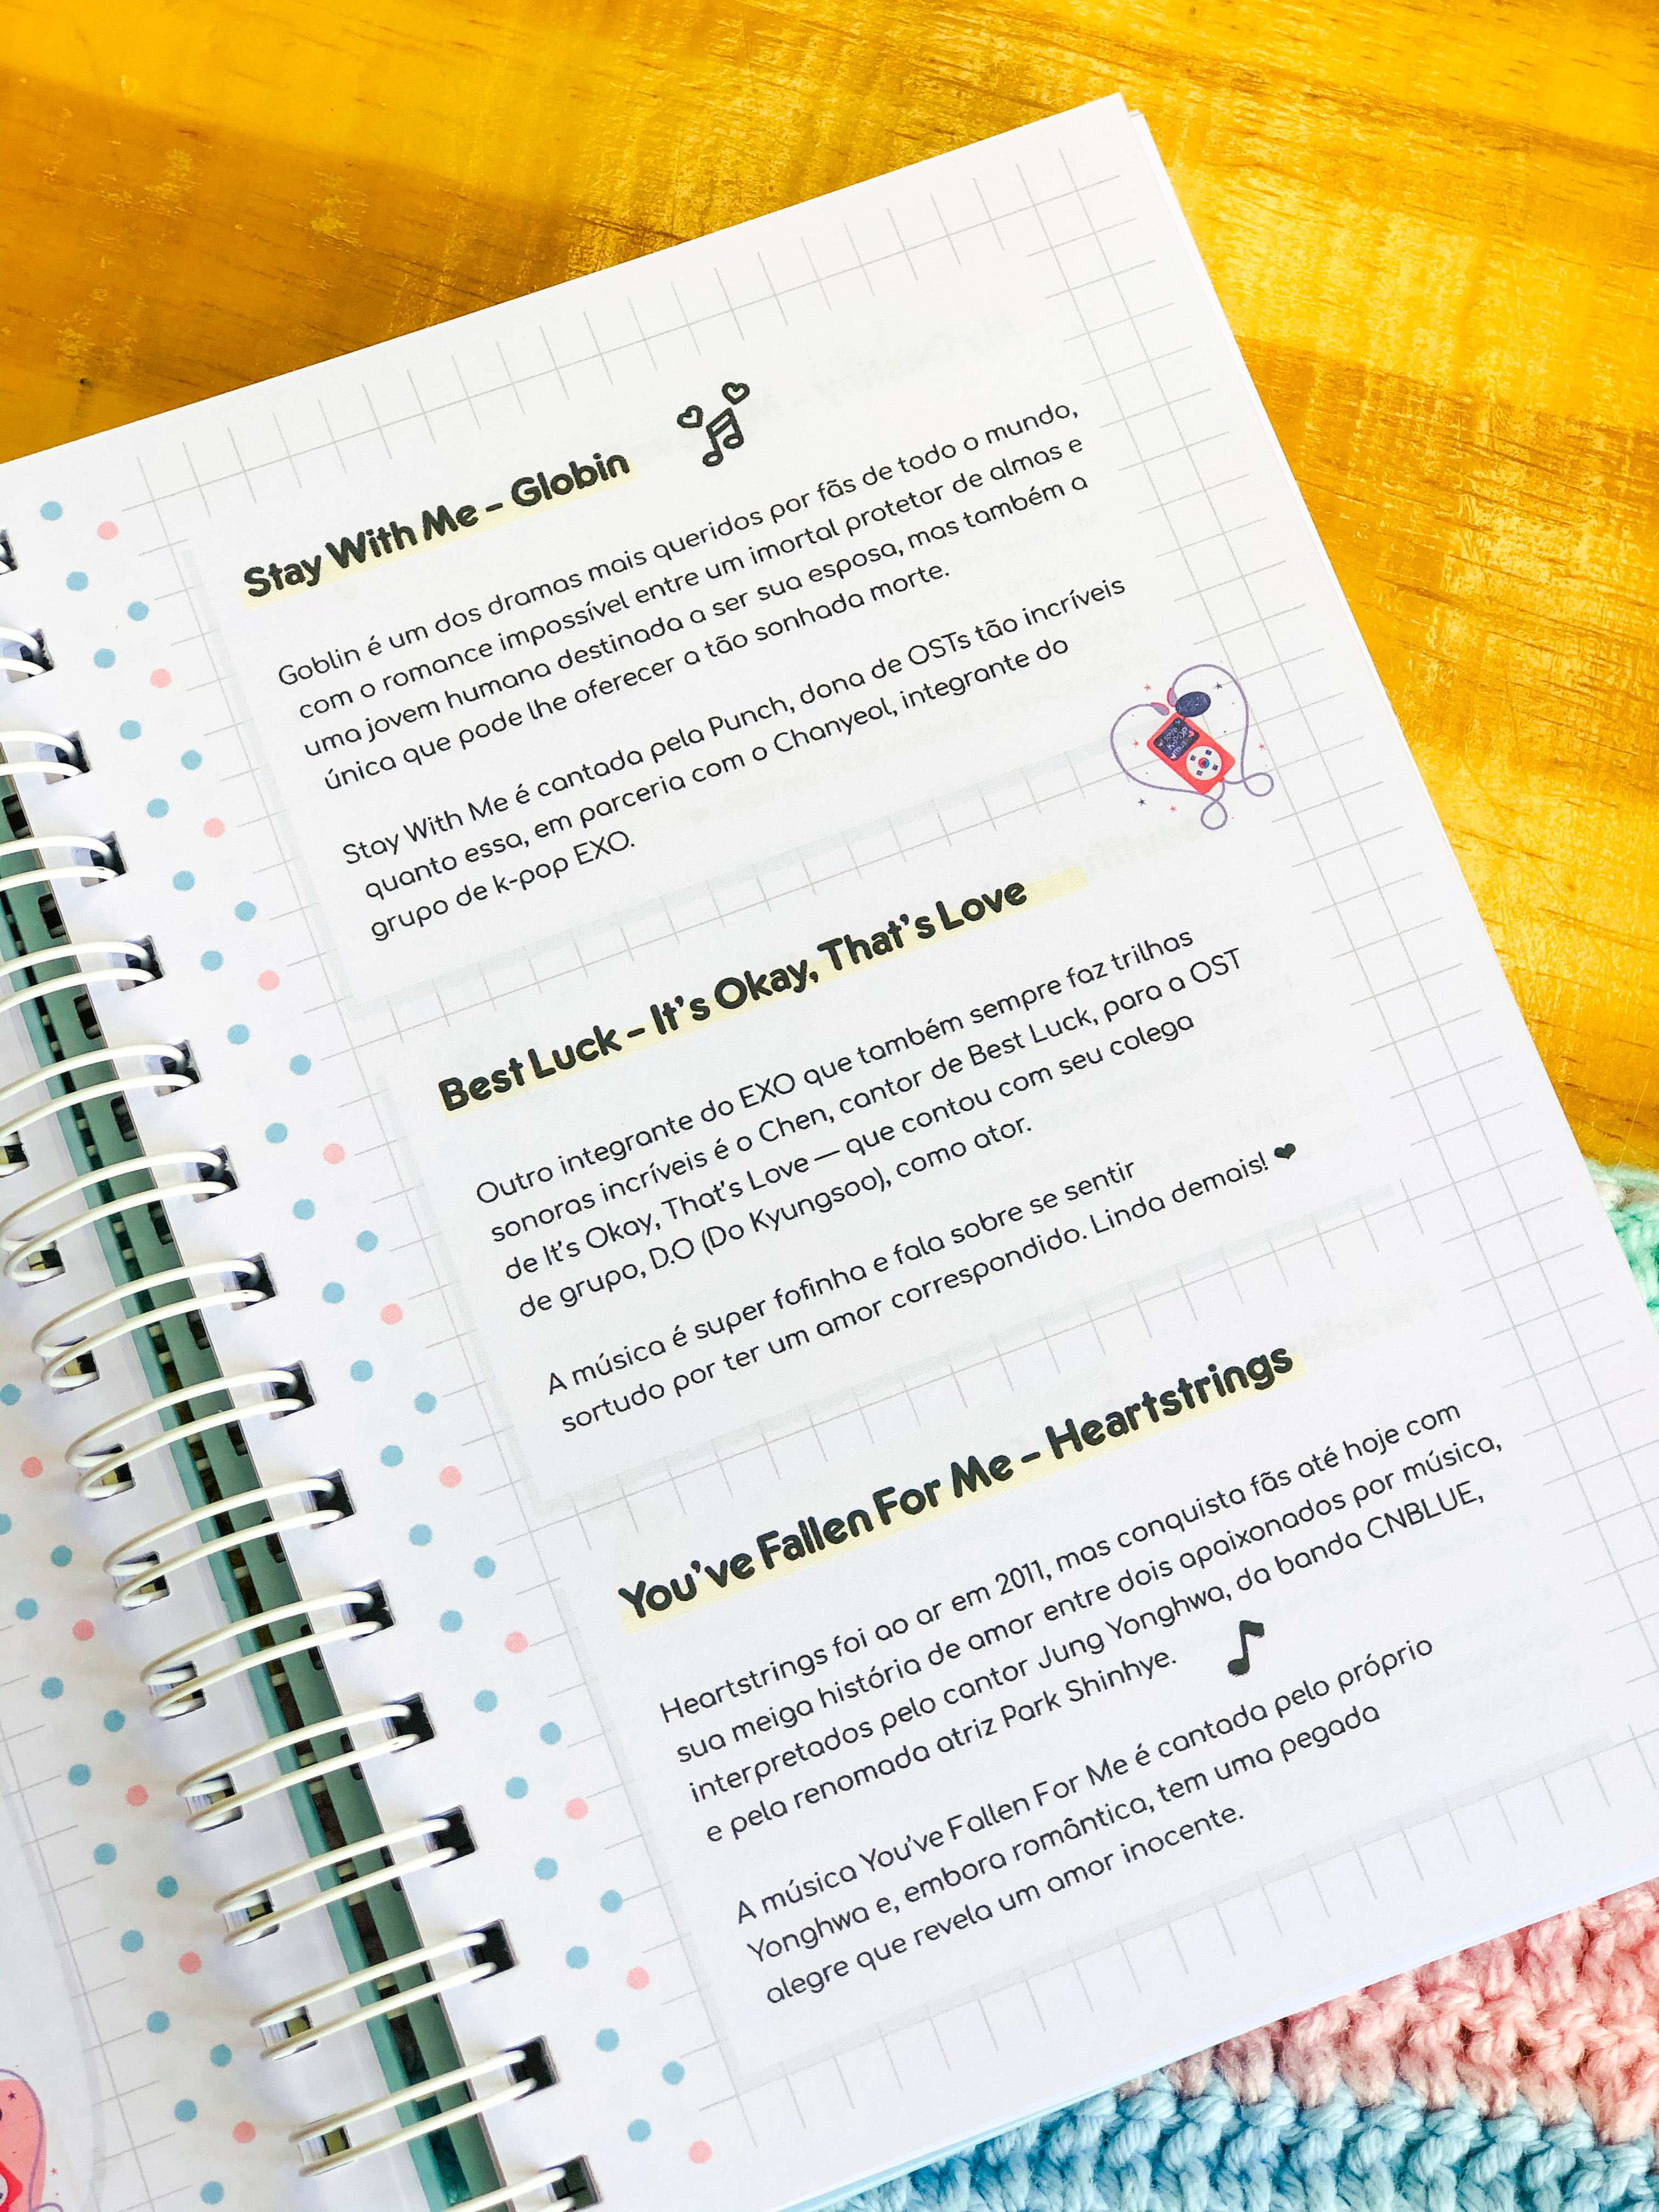 Stay With Me – Globin
Goblin é um dos dramas mais queridos por fãs de todo o mundo,
com o romance impossível entre um imortal protetor de almas e
uma jovem humana destinada a ser sua esposa, mas também a
única que pode lhe oferecer a tão sonhada morte.
Stay With Me é cantada pela Punch, dona de OSTs tão incríveis
quanto essa, em parceria com o Chanyeol, integrante do
grupo de k-pop EXO.
K-POP
Best Luck – It's Okay, That's Love
Outro integrante do EXO que também sempre faz trilhas
sonoras incríveis é o Chen, cantor de Best Luck, para a OST
de It's Okay, That's Love — que contou com seu colega
de grupo, D.O (Do Kyungsoo), como ator.
A música é super fofinha e fala sobre se sentir
sortudo por ter um amor correspondido. Linda demais! ❤
You've Fallen For Me – Heartstrings
Heartstrings foi ao ar em 2011, mas conquista fãs até hoje com
sua meiga história de amor entre dois apaixonados por música,
interpretados pelo cantor Jung Yonghwa, da banda CNBLUE,
e pela renomada atriz Park Shinhye.
A música You've Fallen For Me é cantada pelo próprio
Yonghwa e, embora romântica, tem uma pegada
alegre que revela um amor inocente.